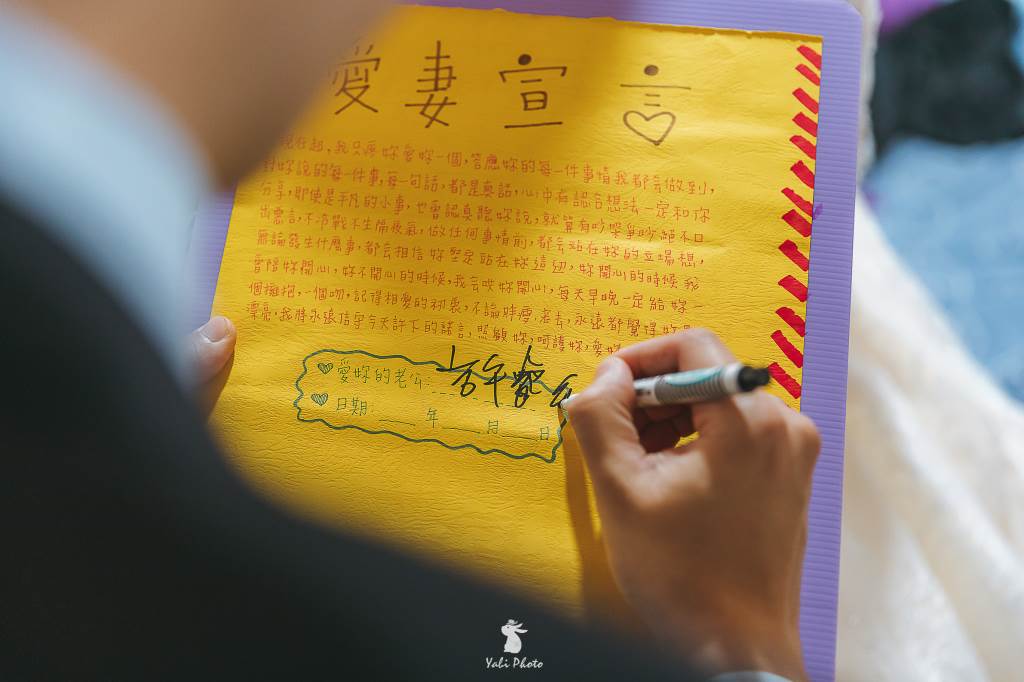 愛妻宣言
現在起,我只疼妳愛妳一個,答應妳的每一件事情我都会做到,
對妳說的每一件事,每一句話,都是真話,心中有話合想法一定和你
分享,即使是平凡的小事,也會認真聽妳說,就算有吵架爭吵絕不口
出惡言,不冷戰不生隔夜氣,做任何事情前,都会站在妳的立場想,
無論發生什麼事,都会相信妳堅定站在妳這边,妳開心的時候我
會陪妳開心,妳不開心的時候,我会哄妳開心,每天早晚一定給妳一
個擁抱,一個吻,記得相愛的初衷,不論胖瘦,老去,永遠都覺得妳
漂亮,我將永遠信守今天許下的諾言,照顧妳,呵護妳,愛妳
愛妳的老公:
日期: 年 月 日
Yabi Photo